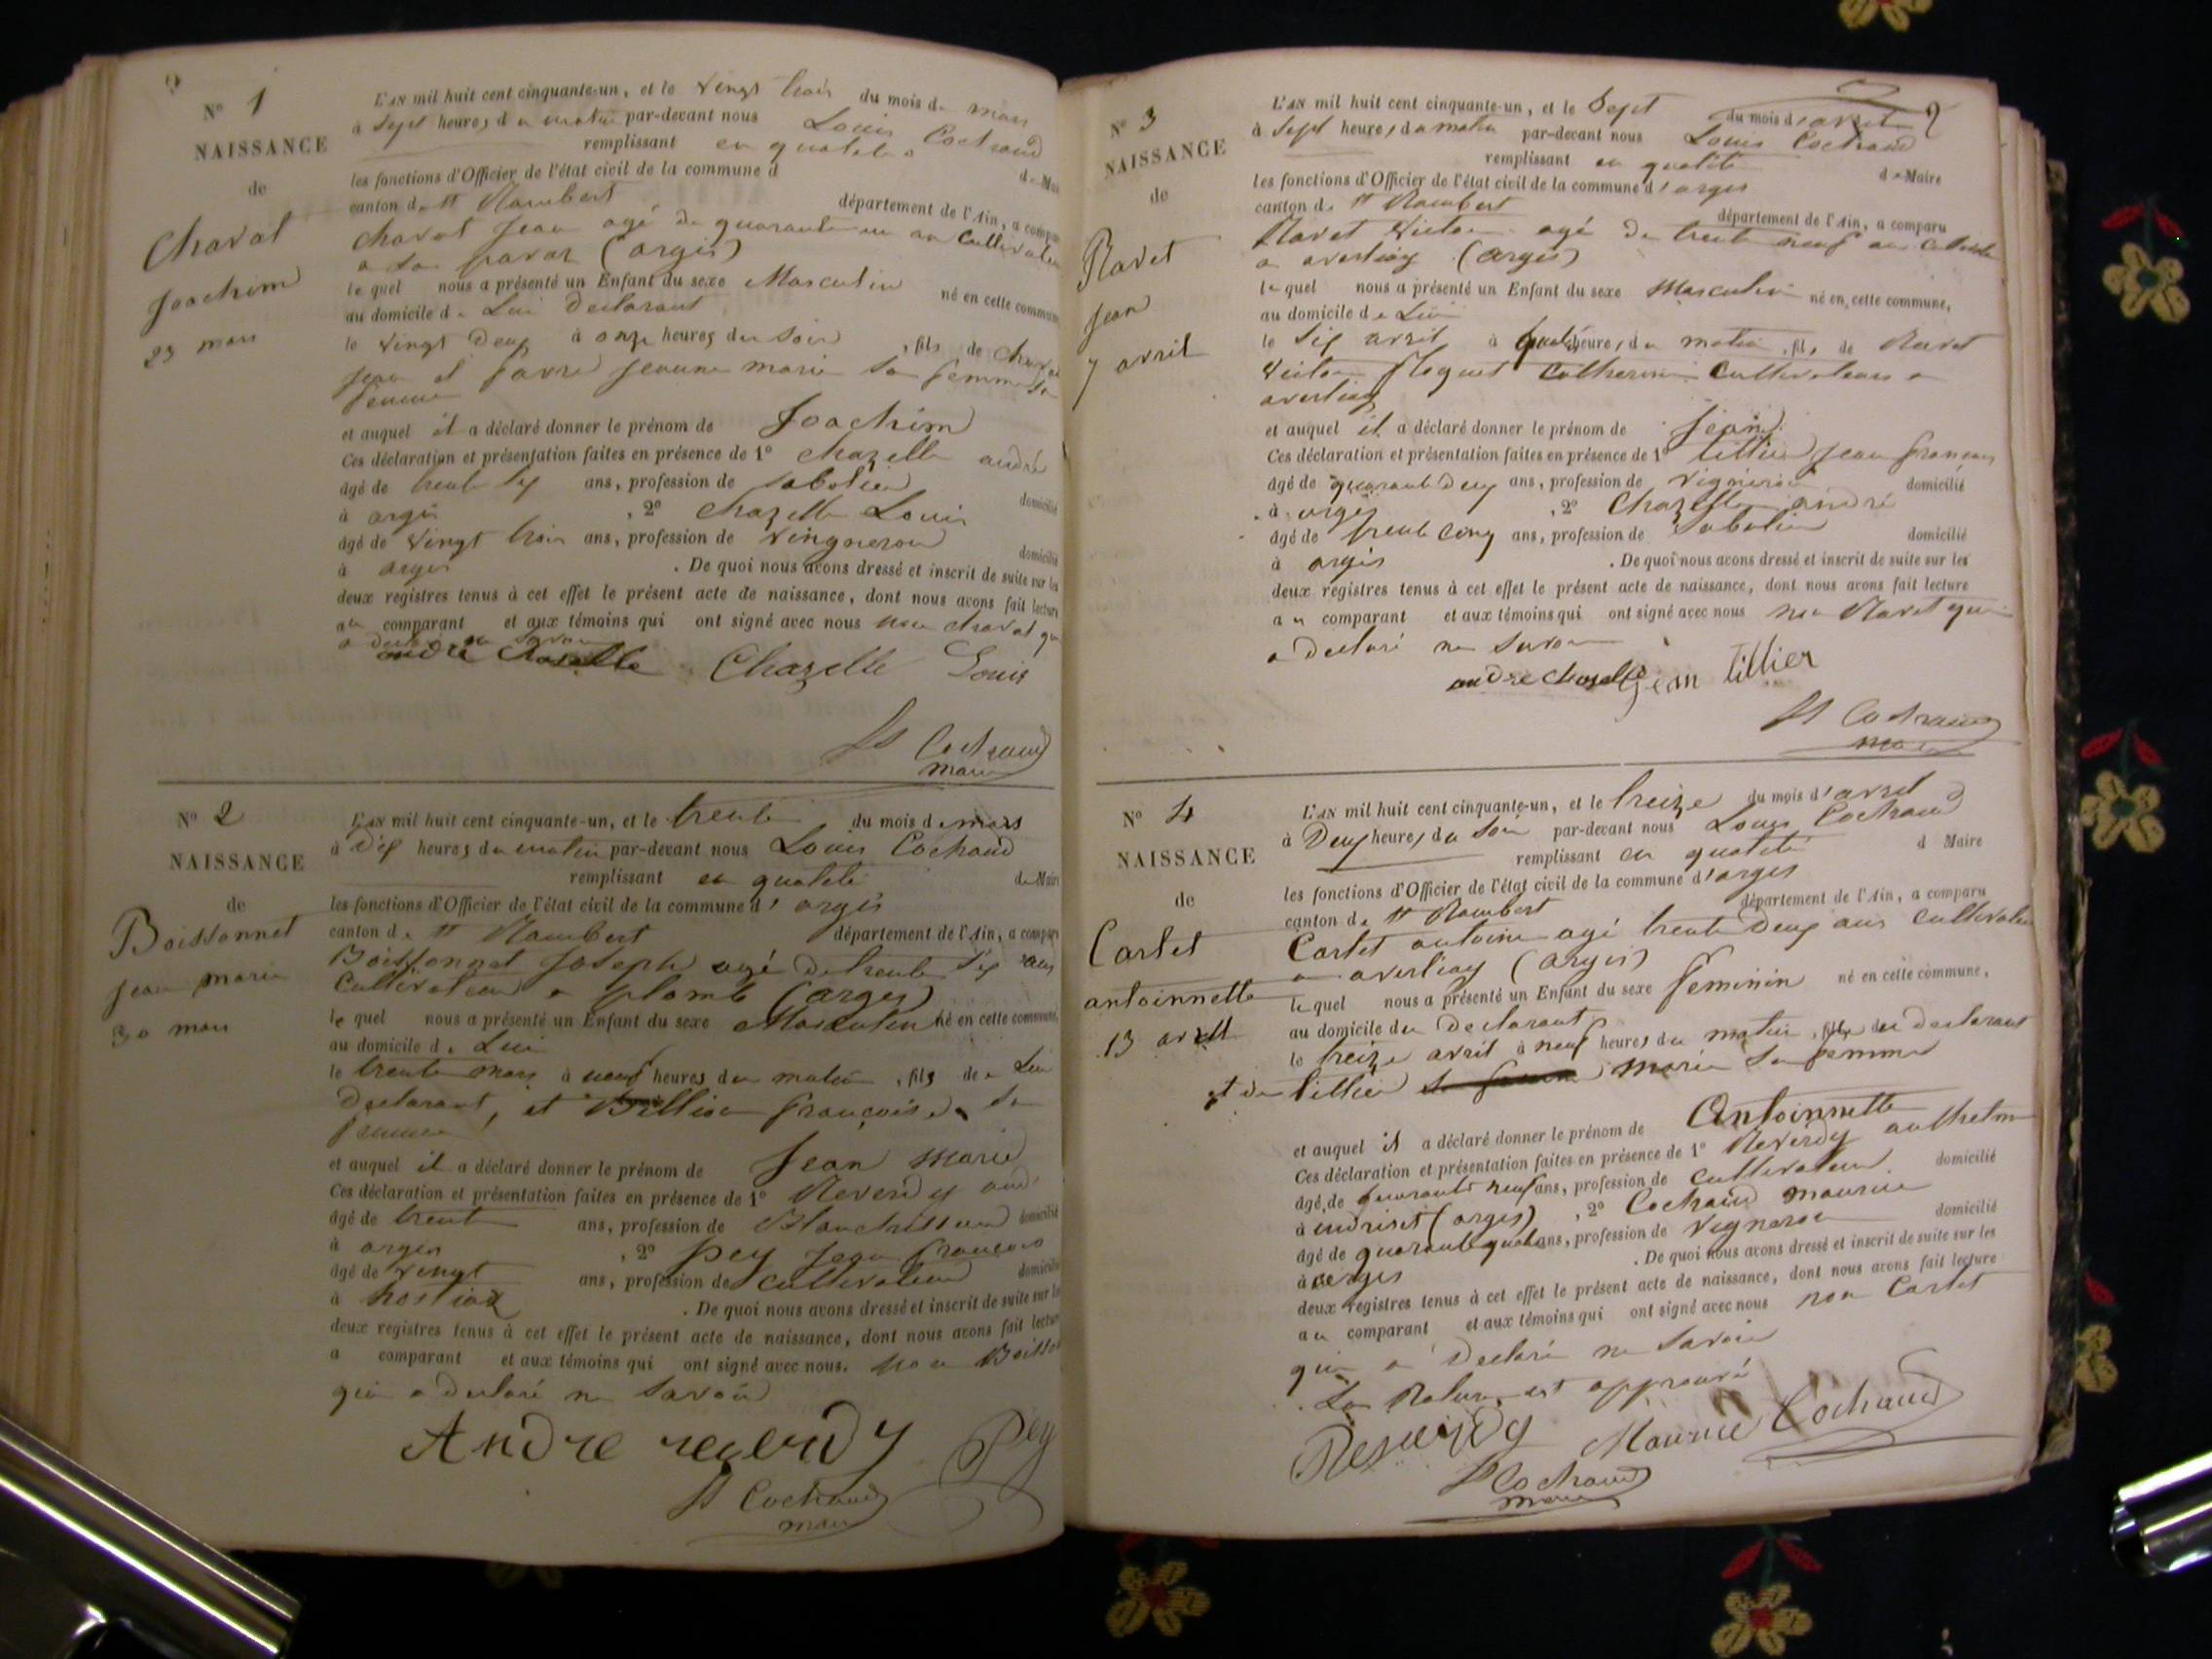 N° 1
NAISSANCE
de
Chavat
Joachim
23 mars
L'AN mil huit cent cinquante-un, et le vingt trois du mois de mars
à sept heures du matin par-devant nous Louis Cochaud
remplissant en qualité de Mai
les fonctions d'Officier de l'état civil de la commune d
canton de st Rambert département de l'Ain, a compa
Chavat Jean agé de quarante un an cultivateu
(argis)
le quel nous a présenté un Enfant du sexe Masculin né en cette commun
au domicile de Lui Declarant
le vingt deux à onze heures du soir, fils de Chavat
Jean et favre jeanne marie sa femme
et auquel il a déclaré donner le prénom de Joachim
Ces déclaration et présentation faites en présence de 1° chazelle andré
âgé de trente six ans, profession de sabotier domicilié
à argis, 2° Chazelle Louis
âgé de vingt trois ans, profession de vingneron domicilié
à argis. De quoi nous avons dressé et inscrit de suite sur les
deux registres tenus à cet effet le présent acte de naissance, dont nous avons fait lecture
au comparant et aux témoins qui ont signé avec nous non chavat qu
a declaré ne savoir
andré Chazelle Chazelle Louis
Ls Cochaud
maire
N° 2
NAISSANCE
de
Boissonnet
jean marie
30 mars
L'AN mil huit cent cinquante-un, et le trente du mois de mars
à dix heures du matin par-devant nous Louis Cochaud
remplissant en qualité de Maire
les fonctions d'Officier de l'état civil de la commune d'argis
canton de st Rambert département de l'Ain, a compar
Boissonnet Joseph agé de trente six ans
Cultivateur a plomb (argis)
le quel nous a présenté un Enfant du sexe Masculin né en cette commune,
au domicile de Lui
le trente mars à neuf heures du matin, fils de Lui
Declarant, et Billion françoise sa
femme
et auquel il a déclaré donner le prénom de Jean marie
Ces déclaration et présentation faites en présence de 1° Reverdy and
âgé de trente ans, profession de Blanchisseur domicilié
à argis, 2° pey Jean françois
âgé de vingt ans, profession de cultivateur domicilié
à hostiaz. De quoi nous avons dressé et inscrit de suite sur les
deux registres tenus à cet effet le présent acte de naissance, dont nous avons fait lectur
a comparant et aux témoins qui ont signé avec nous. non Boisso
qui a declaré ne savoir
Andre reverdy Pey
Ls Cochaud
maire
2
N° 3
NAISSANCE
de
Ravet
Jean
7 avril
L'AN mil huit cent cinquante-un, et le Sept du mois d'avril
à Sept heures du matin par-devant nous Louis Cochaud
remplissant en qualité de Maire
les fonctions d'Officier de l'état civil de la commune d'argis
canton de st Rambert département de l'Ain, a comparu
Ravet Victor agé de trente neuf an
a averliay (argis)
le quel nous a présenté un Enfant du sexe Masculin né en cette commune,
au domicile de Lui
le six avril à quatre heures du matin, fils de Ravet
Victor Catherine Cultivateurs a
averliay
et auquel il a déclaré donner le prénom de Jean
Ces déclaration et présentation faites en présence de 1° tillier Jean francois
âgé de quarante deux ans, profession de vigneron domicilié
à argis, 2° Chazelle andré
âgé de trente cinq ans, profession de Sabotier domicilié
à argis. De quoi nous avons dressé et inscrit de suite sur les
deux registres tenus à cet effet le présent acte de naissance, dont nous avons fait lecture
au comparant et aux témoins qui ont signé avec nous non Ravet qui
a declaré ne savoir
andre chazelle jean tillier
Ls Cochaud
maire
N° 4
NAISSANCE
de
Cartet
antoinnette
13 avril
L'AN mil huit cent cinquante-un, et le treize du mois d'avril
à Deux heures du Soir par-devant nous Louis Cochaud
remplissant en qualité d Maire
les fonctions d'Officier de l'état civil de la commune d'argis
canton de st Rambert département de l'Ain, a comparu
Cartet antoine agé trente deux ans cultivateur
a averliay (argis)
le quel nous a présenté un Enfant du sexe feminin né en cette commune,
au domicile du Declarant
le treize avril à neuf heures du matin, fille du declarant
et de tillier marie sa femme
et auquel il a déclaré donner le prénom de Antoinnette
Ces déclaration et présentation faites en présence de 1° Reverdy anthelme
âgé de quarante neuf ans, profession de cultivateur domicilié
à indriset (argis), 2° Cochaud maurice
âgé de quarante quatre ans, profession de vigneron domicilié
à argis. De quoi nous avons dressé et inscrit de suite sur les
deux registres tenus à cet effet le présent acte de naissance, dont nous avons fait lecture
au comparant et aux témoins qui ont signé avec nous non Cartet
qui a Declaré ne savoir
La Rature est approuvé
Reverdy Maurice Cochaud
Ls Cochaud
maire